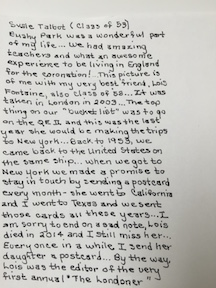 Susie Talbot (Class of 53)
Bushy Park was a wonderful part
of my life... We had amazing
teachers and what an awesome
experience to be living in England
for the coronation! This picture is
of me with my very best friend, Lois
Fontaine, also class of 53... It was
taken in London in 2003... The top
thing on our "bucket list" was to go
on the Q.E. II, and this was the last
year she would be making the trips
to New York... Back to 1953, we
came back to the United States on
the same ship... when we got to
New York we made a promise to
stay in touch by sending a postcard
every month - she went to California
and I went to Texas and we sent
those cards all these years... I
am sorry to end on a sad note, Lois
died in 2014 and I still miss her...
Every once in a while, I send her
daughter a postcard... By the way,
Lois was the editor of the very
first annual! "The Londoner"